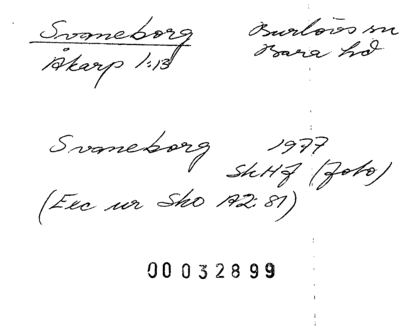 Svaneborg Burlövs sn
Åkarp 1:13 Bara hd
Svaneborg 1977
SkHf (foto)
(Exc ur Sko A2:81)
00032899